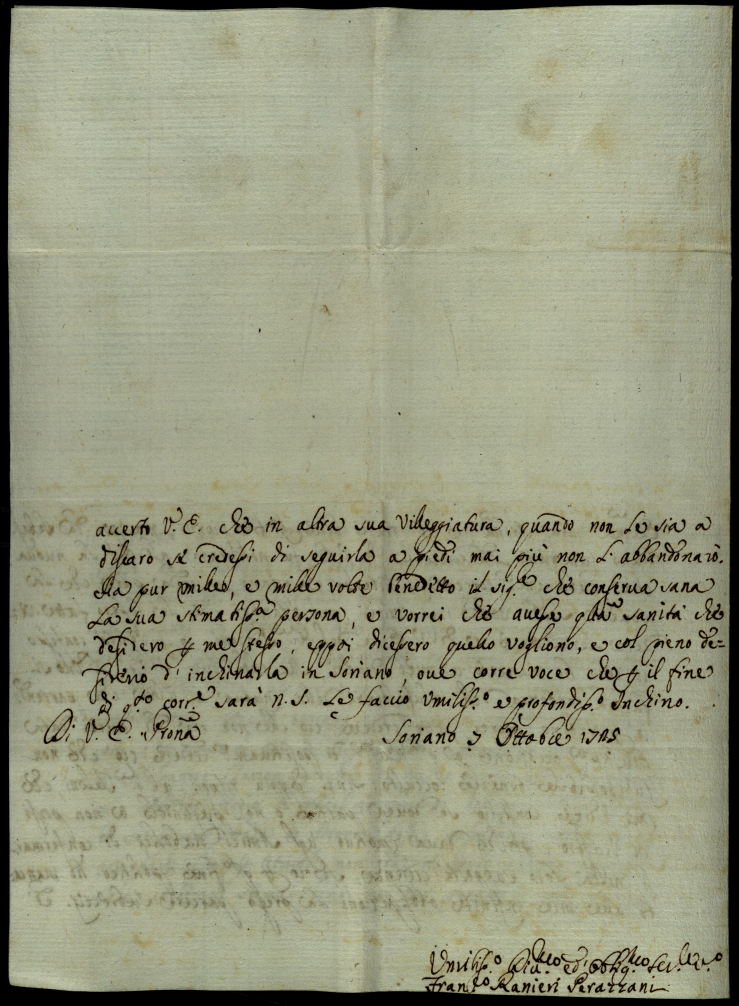 accerto V. E. che in altra sua Villeggiatura, quando non Le sia a
discaro se credessi di seguirla a piedi mai più non L'abbandonarò.
Sia pur mille, e mille volte benedetto il Sig.re che conserva sana
La sua stimatiss.ma persona, e vorrei che avesse q.lla sanità che
desidero p me stesso, eppoi dicessero quello vogliono, e col pieno de=
siderio d'inchinarla in Soriano, ove corre voce che p il fine
di q.sto corr.e sarà n. S. Le faccio Umiliss.o e profondiss.o Inchino.
Di V. E. Prona
Soriano 7 Ottobre 1785
Umiliss.o Div.mo ed Obblig.mo Ser.re
Fran.co Ranieri Perazzani